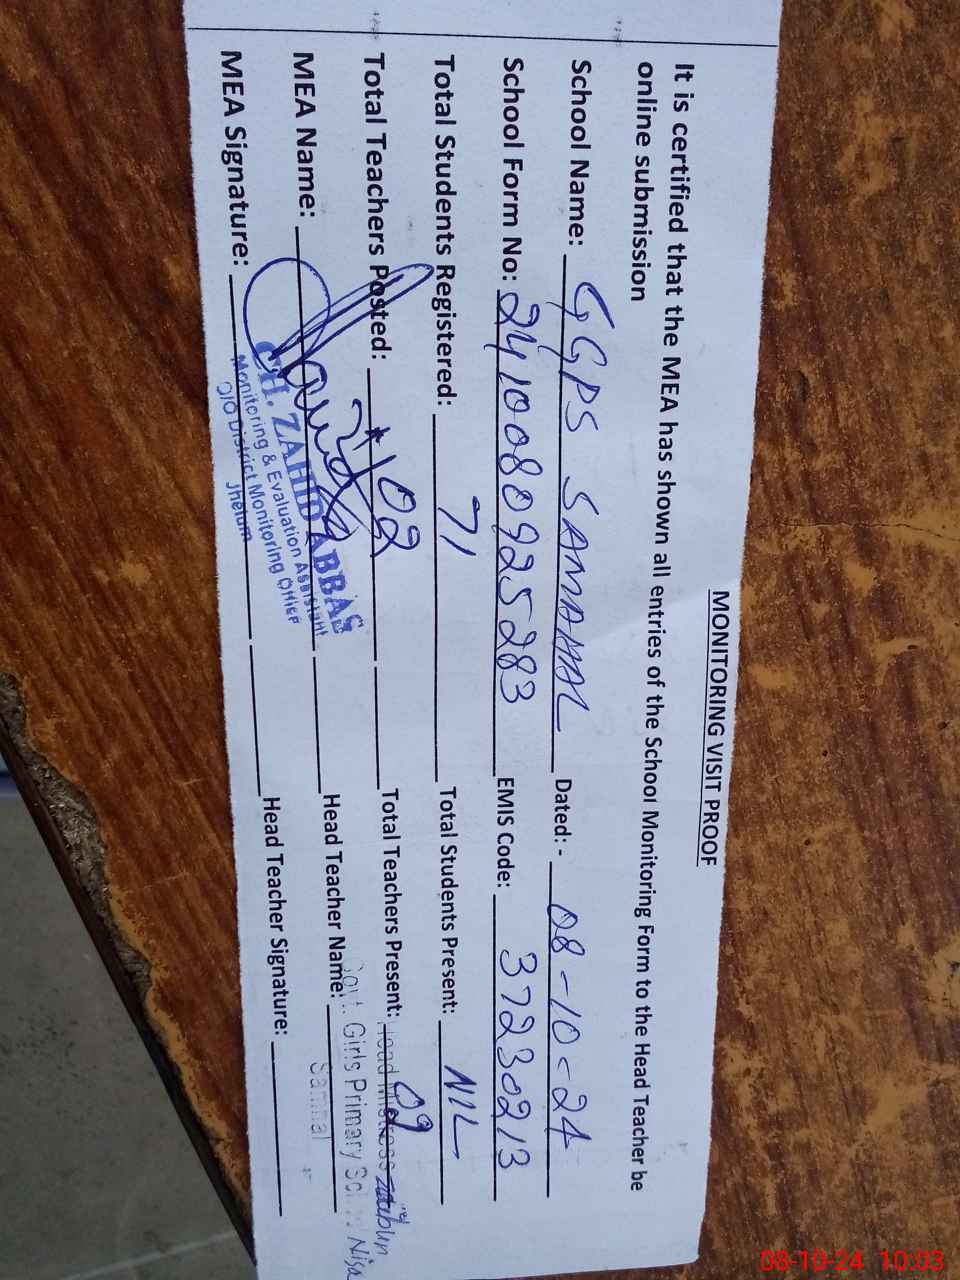 MONITORING VISIT PROOF
It is certified that the MEA has shown all entries of the School Monitoring Form to the Head Teacher be
online submission
School Name: GGPS SAMMAL Dated: - 08-10-24
School Form No: 2410080925283 EMIS Code: 37230213
Total Students Registered: 71 Total Students Present: NIL
Total Teachers Posted: 02 Total Teachers Present: 02
MEA Name: Head Teacher Name:
MEA Signature: Head Teacher Signature:
CH. ZAHID ABBAS
Monitoring & Evaluation Assistant
O/O District Monitoring Office
Jhelum
Head Mistress
Govt. Girls Primary
Sammal
Nisa
08-10-24 10:03